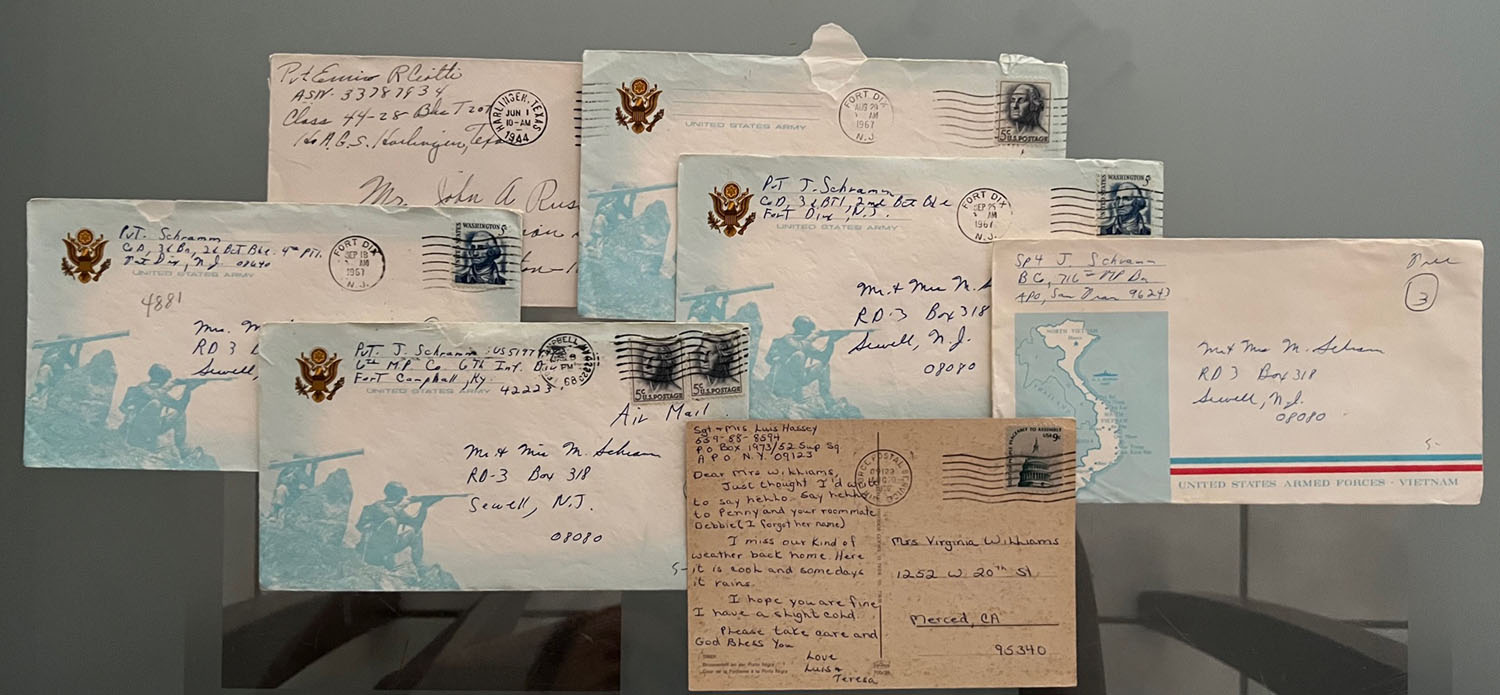 Pvt
ASN. 33787934
Class 44-28
H.A.G.S. Harlingen, Texas
HARLINGEN, TEXAS
JUN 1
10-AM
1944
Mr. John A Rus
UNITED STATES ARMY
FORT DIX
AUG 29
AM
1967
N.J.
5¢ U.S. POSTAGE
Pvt J. Schramm
Co D, 3d BT1, 2nd Bct Bde
Fort Dix, N.J.
UNITED STATES ARMY
FORT DIX
SEP 25
AM
1967
N.J.
UNITED STATES
WASHINGTON 5¢
Mr. + Mrs M. S
RD-3 Box 318
Sewell, N.J.
08080
Pvt. Schramm
Co D, 3d Bn, 2d Bct Bde. 4th PTL.
Fort Dix, N.J. 08640
UNITED STATES ARMY
FORT DIX
SEP 18
AM
1967
N.J.
UNITED STATES
WASHINGTON 5¢
4881
Mrs. M
RD 3
Sewell,
Pvt. J. Schramm
6th M.P. Co. 6th Inf. Div
Fort Campbell, Ky.
42223
UNITED STATES ARMY
PM
68
5¢ U.S. POSTAGE
5¢ U.S. POSTAGE
Air Mail
Mr + Mrs M. Schramm
RD-3 Box 318
Sewell, N.J.
08080
5-
Sp4 J. Schramm
B Co, 716th MP Bn
APO, San Fran 96243
Free
3
NORTH VIETNAM
THAILAND
Mr + Mrs M. Schram
RD 3 Box 318
Sewell, N.J.
08080
5-
UNITED STATES ARMED FORCES - VIETNAM
Sgt + Mrs Luis Hassey
559-58-8594
P.O Box 1973/52 Sup Sq.
A P.O. N.Y. 09123
Dear Mrs Williams,
Just thought I'd write
to say hello. Say hello
to Penny and your roommate
Debbie (I forgot her name)
I miss our kind of
weather back home. Here
it is cool and somedays
it rains.
I hope you are fine
I have a slight cold.
Please take care and
God Bless You
Love
Luis +
Teresa
POSTAL SERVICE
09123
PEACEABLY TO ASSEMBLE
USA 9c
Mrs Virginia Williams
1252 W. 20th St.
Merced, CA
95340